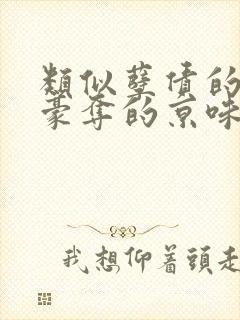 類似孽債的
豪奪的京味
我想仰着頭走